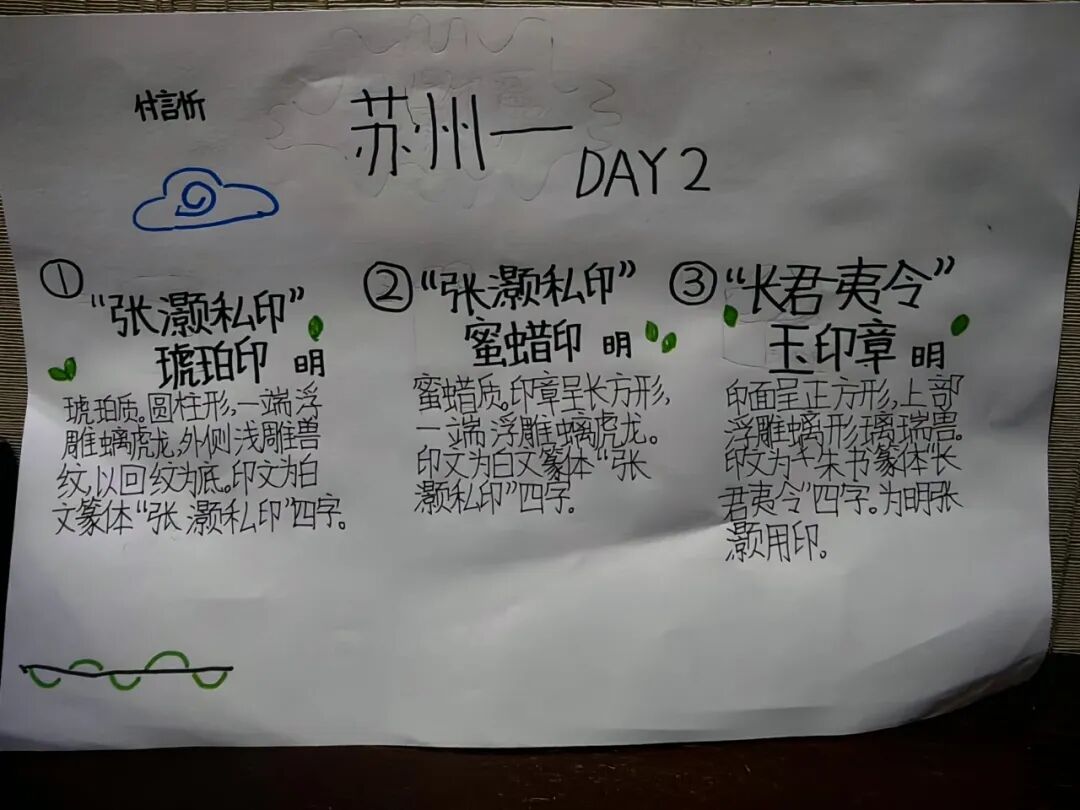 付言忻
苏州一
DAY 2
① "张灏私印"
琥珀印 明
琥珀质。圆柱形,一端浮
雕螭虎龙,外侧浅雕兽
纹,以回纹为底。印文为白
文篆体"张灏私印"四字。
② "张灏私印"
蜜蜡印 明
蜜蜡质。印章呈长方形,
一端浮雕螭虎龙。
印文为白文篆体"张
灏私印"四字。
③ "长君夷令"
玉印章 明
印面呈正方形,上部
浮雕螭形璃瑞兽。
印文为朱书篆体"长
君夷令"四字。为明张
灏用印。